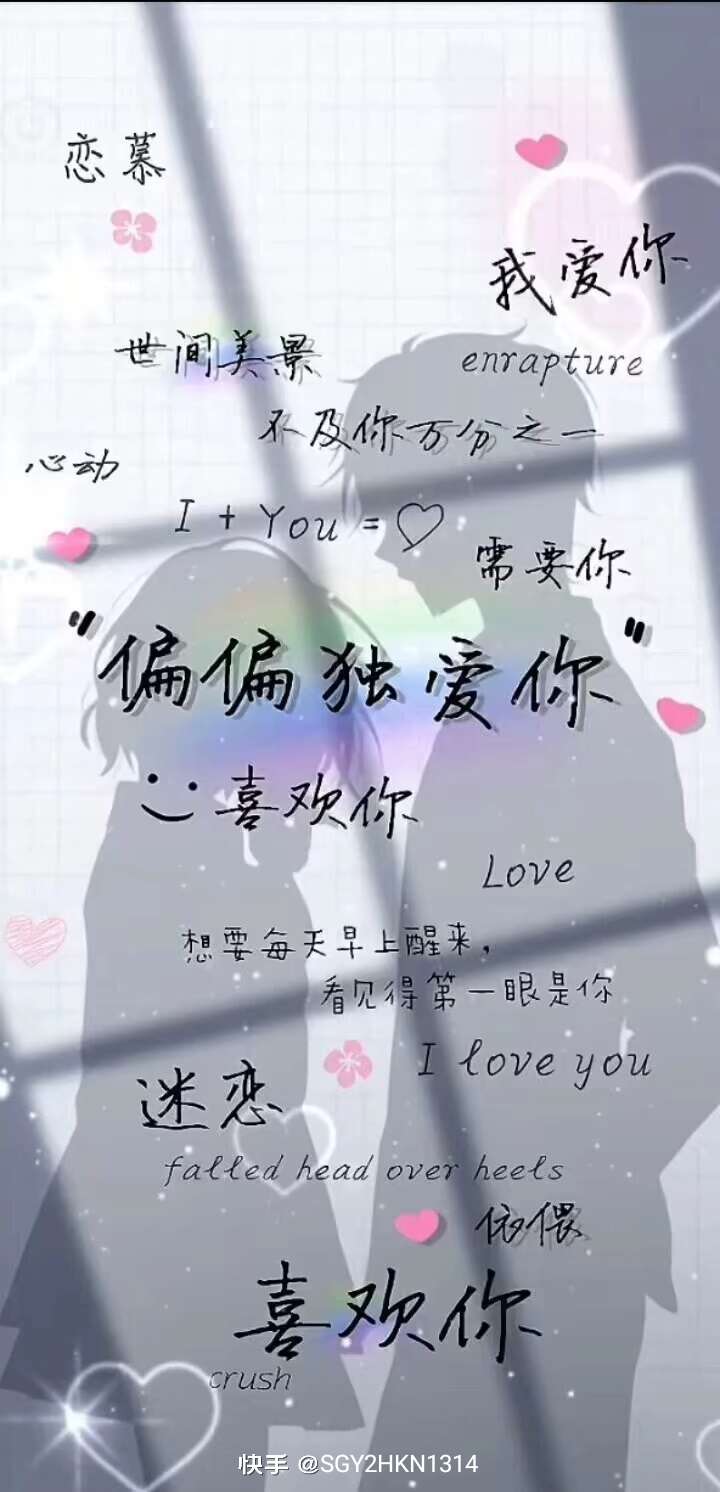 恋慕
我爱你
世间美景
enrapture
不及你万分之一
心动
I + You = ♡
需要你
"偏偏独爱你"
喜欢你
Love
想要每天早上醒来，
看见得第一眼是你
I love you
迷恋
falled head over heels
依偎
喜欢你
crush
快手 @SGY2HKN1314